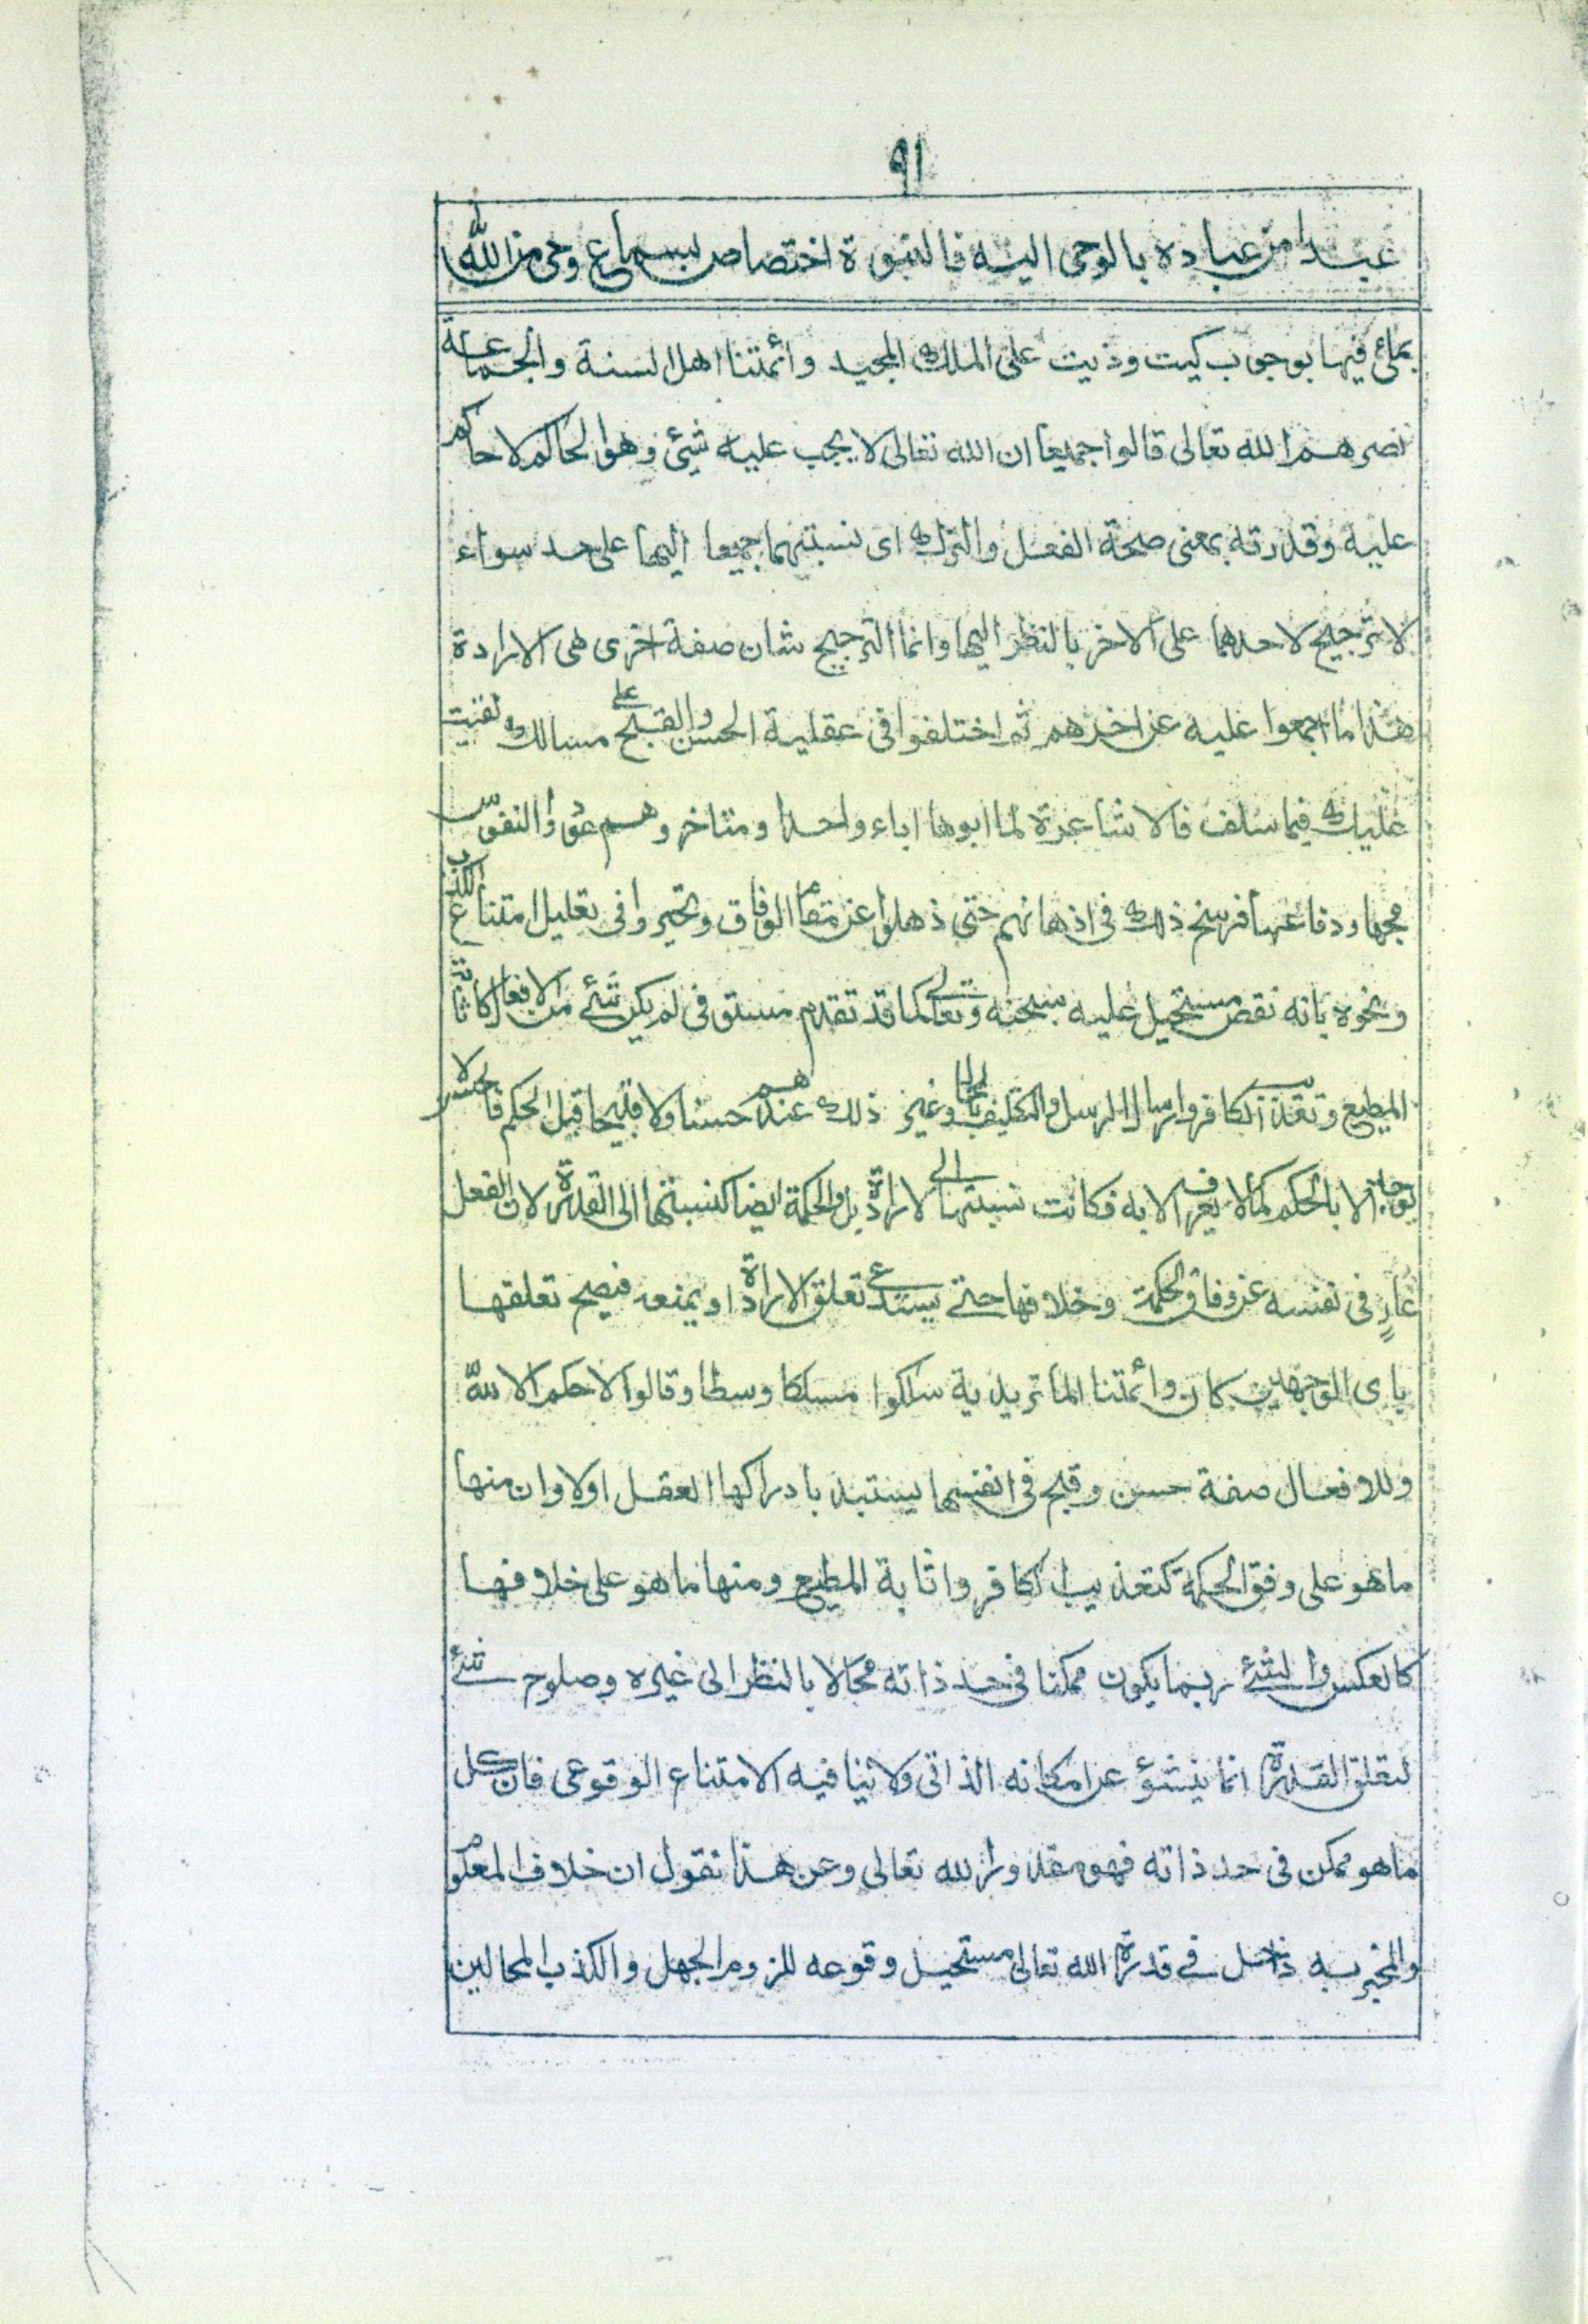 ٩١
عبدا من عباده بالوحى اليه فالنبوة اختصاص بسماع وحى من الله
فيها بوجوب كيت وذيت على الملك المجيد وائمتنا اهل السنة والجماعة
نصرهم الله تعالى قالوا جميعا ان الله تعالى لا يجب عليه شيئ وهو الحاكم لا حاكم
عليه وقدرته بمعنى صحة الفعل والترك اى نسبتهما جميعا اليها على حد سواء
لا ترجيح لاحدهما على الاخر بالنظر اليها وانما الترجيح شان صفة اخرى هى الارادة
هذا ما اجمعوا عليه عن اخرهم ثم اختلفوا فى عقلية الحسن والقبح على مسالك
عليك فيما سلف فالاشاعرة لما ابوها اباء واحدا ومتاخروهم عودوا النفوس
مجها ودفاعها فرسخ ذلك فى اذهانهم حتى ذهلوا عن مقام الوفاق وتحيروا فى تعليل امتناع الكذب
ونحوه بانه نقص مستحيل عليه سبحنه وتعالى كما قد تقدم مستوفى لم يكن شئ من الافعال كاثابة
المطيع وتعذيب الكافر وارسال الرسل والتكليف بالمحال وغير ذلك عندهم حسنا ولا قبيحا قبل الحكم فالحسن لا
يوجد الا بالحكم كما لا يعرف الا به فكانت نسبتها الى الارادة بل والحكمة ايضا كنسبتها الى القدرة لان الفعل
عارٍ فى نفسه عن وفاق الحكمة وخلافها حتى يستدعى تعلق الارادة او يمنعه فيصح تعلقها
باى الوجهين كان وائمتنا الماتريدية سلكوا مسلكا وسطا وقالوا لا حكم الا لله
وللافعال صفة حسن وقبح فى انفسها يستبد بادراكها العقل اولا وان منها
ما هو على وفق الحكمة كتعذيب الكافر واثابة المطيع ومنها ما هو على خلافها
كالعكس والشئ ربما يكون ممكنا فى حد ذاته محالا بالنظر الى غيره وصلوح شئ
لتعلق القدرة انما ينشؤ عن امكانه الذاتى ولا ينافيه الامتناع الوقوعى فان كل
ما هو ممكن فى حد ذاته فهو مقدور لله تعالى وعن هذا نقول ان خلاف المعلوم
والمخبر به داخل فى قدرة الله تعالى مستحيل وقوعه للزوم الجهل والكذب المحالين